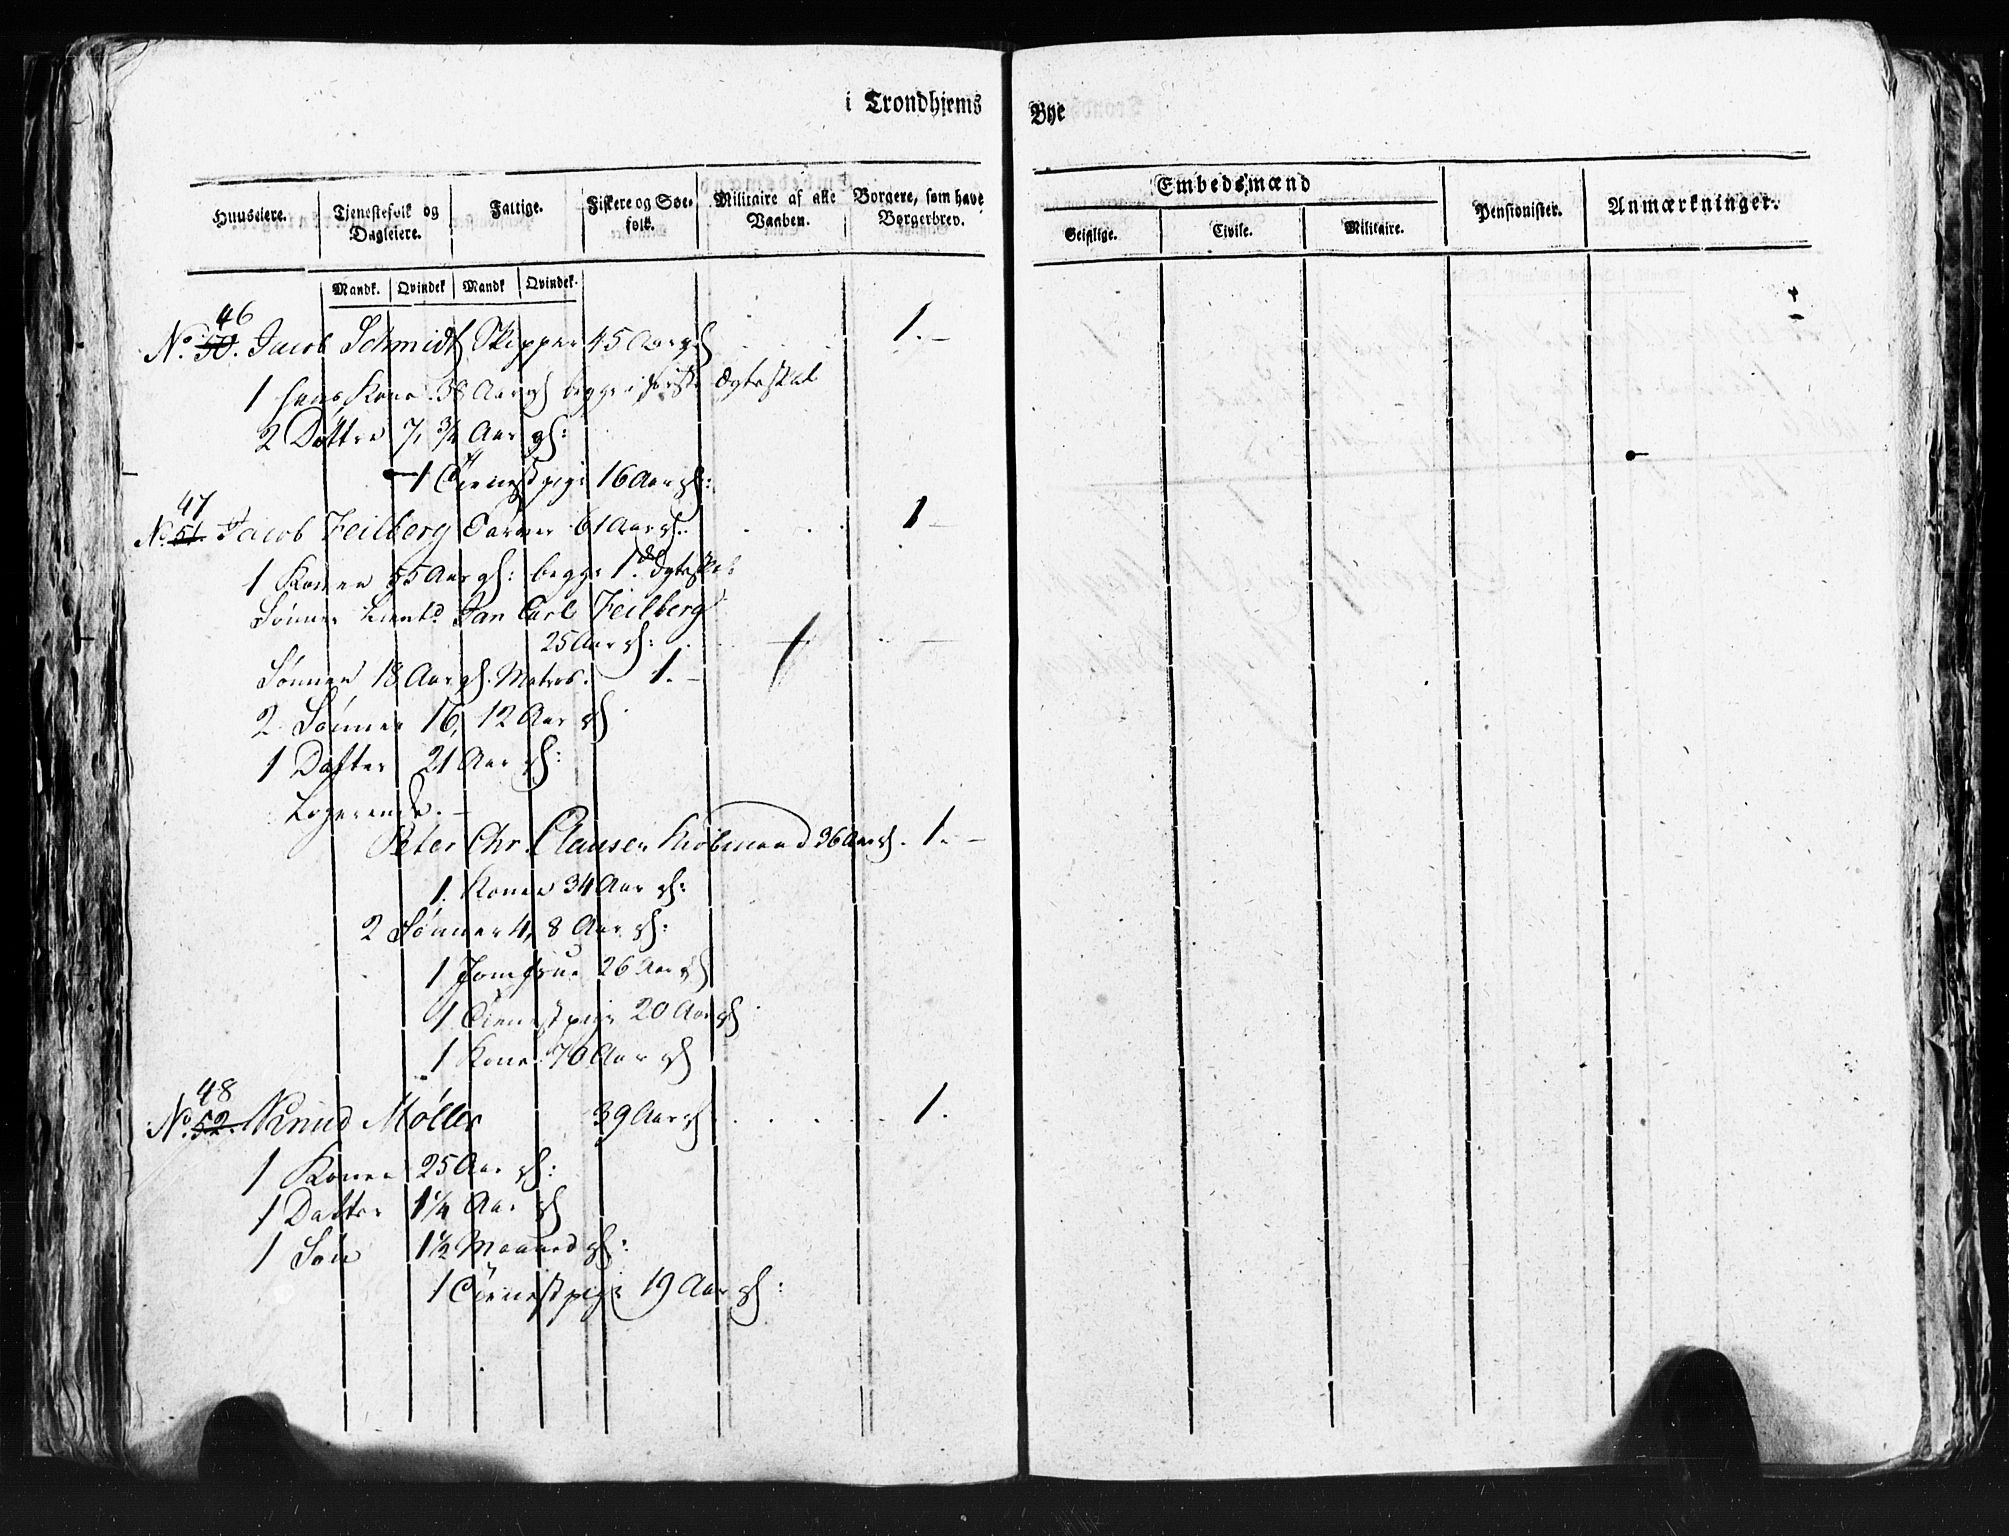 i Trondhjems Bye
Huuseiere. Tjenestefolk og Dagleiere. Fattige. Fiskere og Søefolk. Militaire af alle Vaaben. Borgere, som have Borgerbrev. Embedsmænd Pensionister. Anmærkninger.
Geistlige. Civile. Militaire.
Mandk. Qvindek Mandk Qvindek.
46
No. 50. Jacob Schmidt Skipper 45 Aar gl 1.-
1 hans Kone 38 Aar gl begge i første Ægteskab
2 Døttre 7, 3/4 Aar gl:
1 Tienestpige 16 Aar gl:
47
No. 51. Jacob Feilberg 61 Aar gl. 1-
1 Konen 55 Aar gl: begge 1ste Ægteskab
Sønner Lieut. Jan Carl Feilberg
25 Aar gl: 1
Sønnen 18 Aar gl. Matros. 1.-
2 Sønner 16, 12 Aar gl
1 Datter 21 Aar gl:
Logerende.-
Peter Chr. Clausen Kiøbmand 36 Aar gl. 1.-
1. Konen 34 Aar gl:
2 Sønner 4, 8 Aar gl:
1 Jomfrue 26 Aar gl
1 Tienestpige 20 Aar gl
1 Kone 70 Aar gl
48
No. 52. Knud Møller 39 Aar gl 1.
1 Konen 25 Aar gl:
1 Datter 1 1/4 Aar gl
1 Søn 1 1/2 Maaned gl:
1 Tienestpige 19 Aar gl: